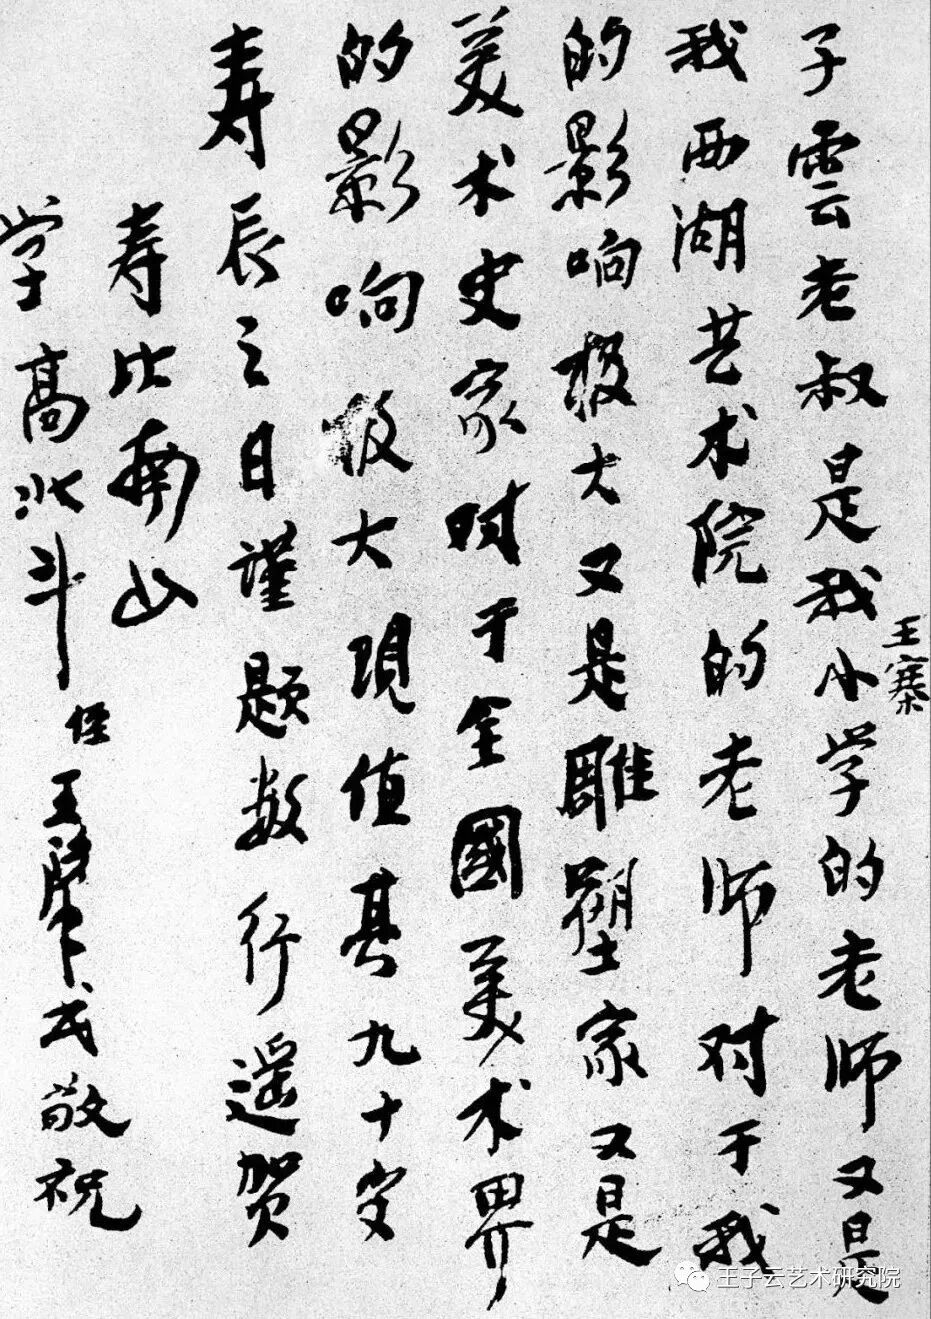 王寨
子雲老叔是我小学的老师又是
我西湖艺术院的老师对于我
的影响极大又是雕塑家又是
美术史家对于全國美术界
的影响极大現值其九十
寿辰之日谨题数行遥贺
寿比南山
学高北斗
侄王肇民敬祝
王子云艺术研究院